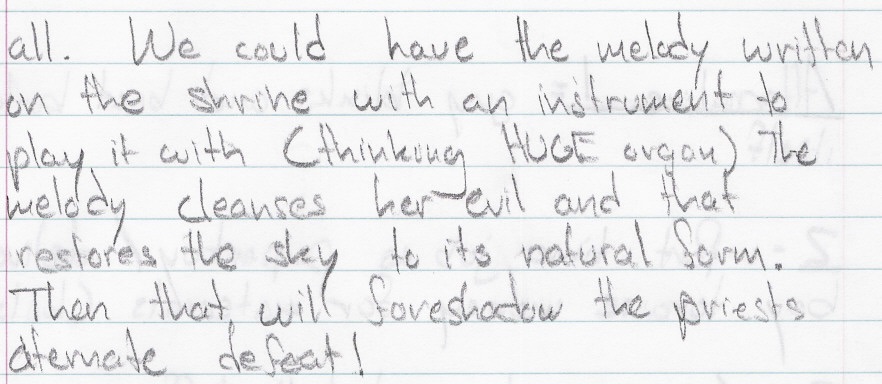 all. We could have the melody written
on the shrine with an instrument to
play it with (thinking HUGE organ) The
melody cleanses her evil and that
restores the sky to its natural form.
Then that will foreshadow the priests
alternate defeat!